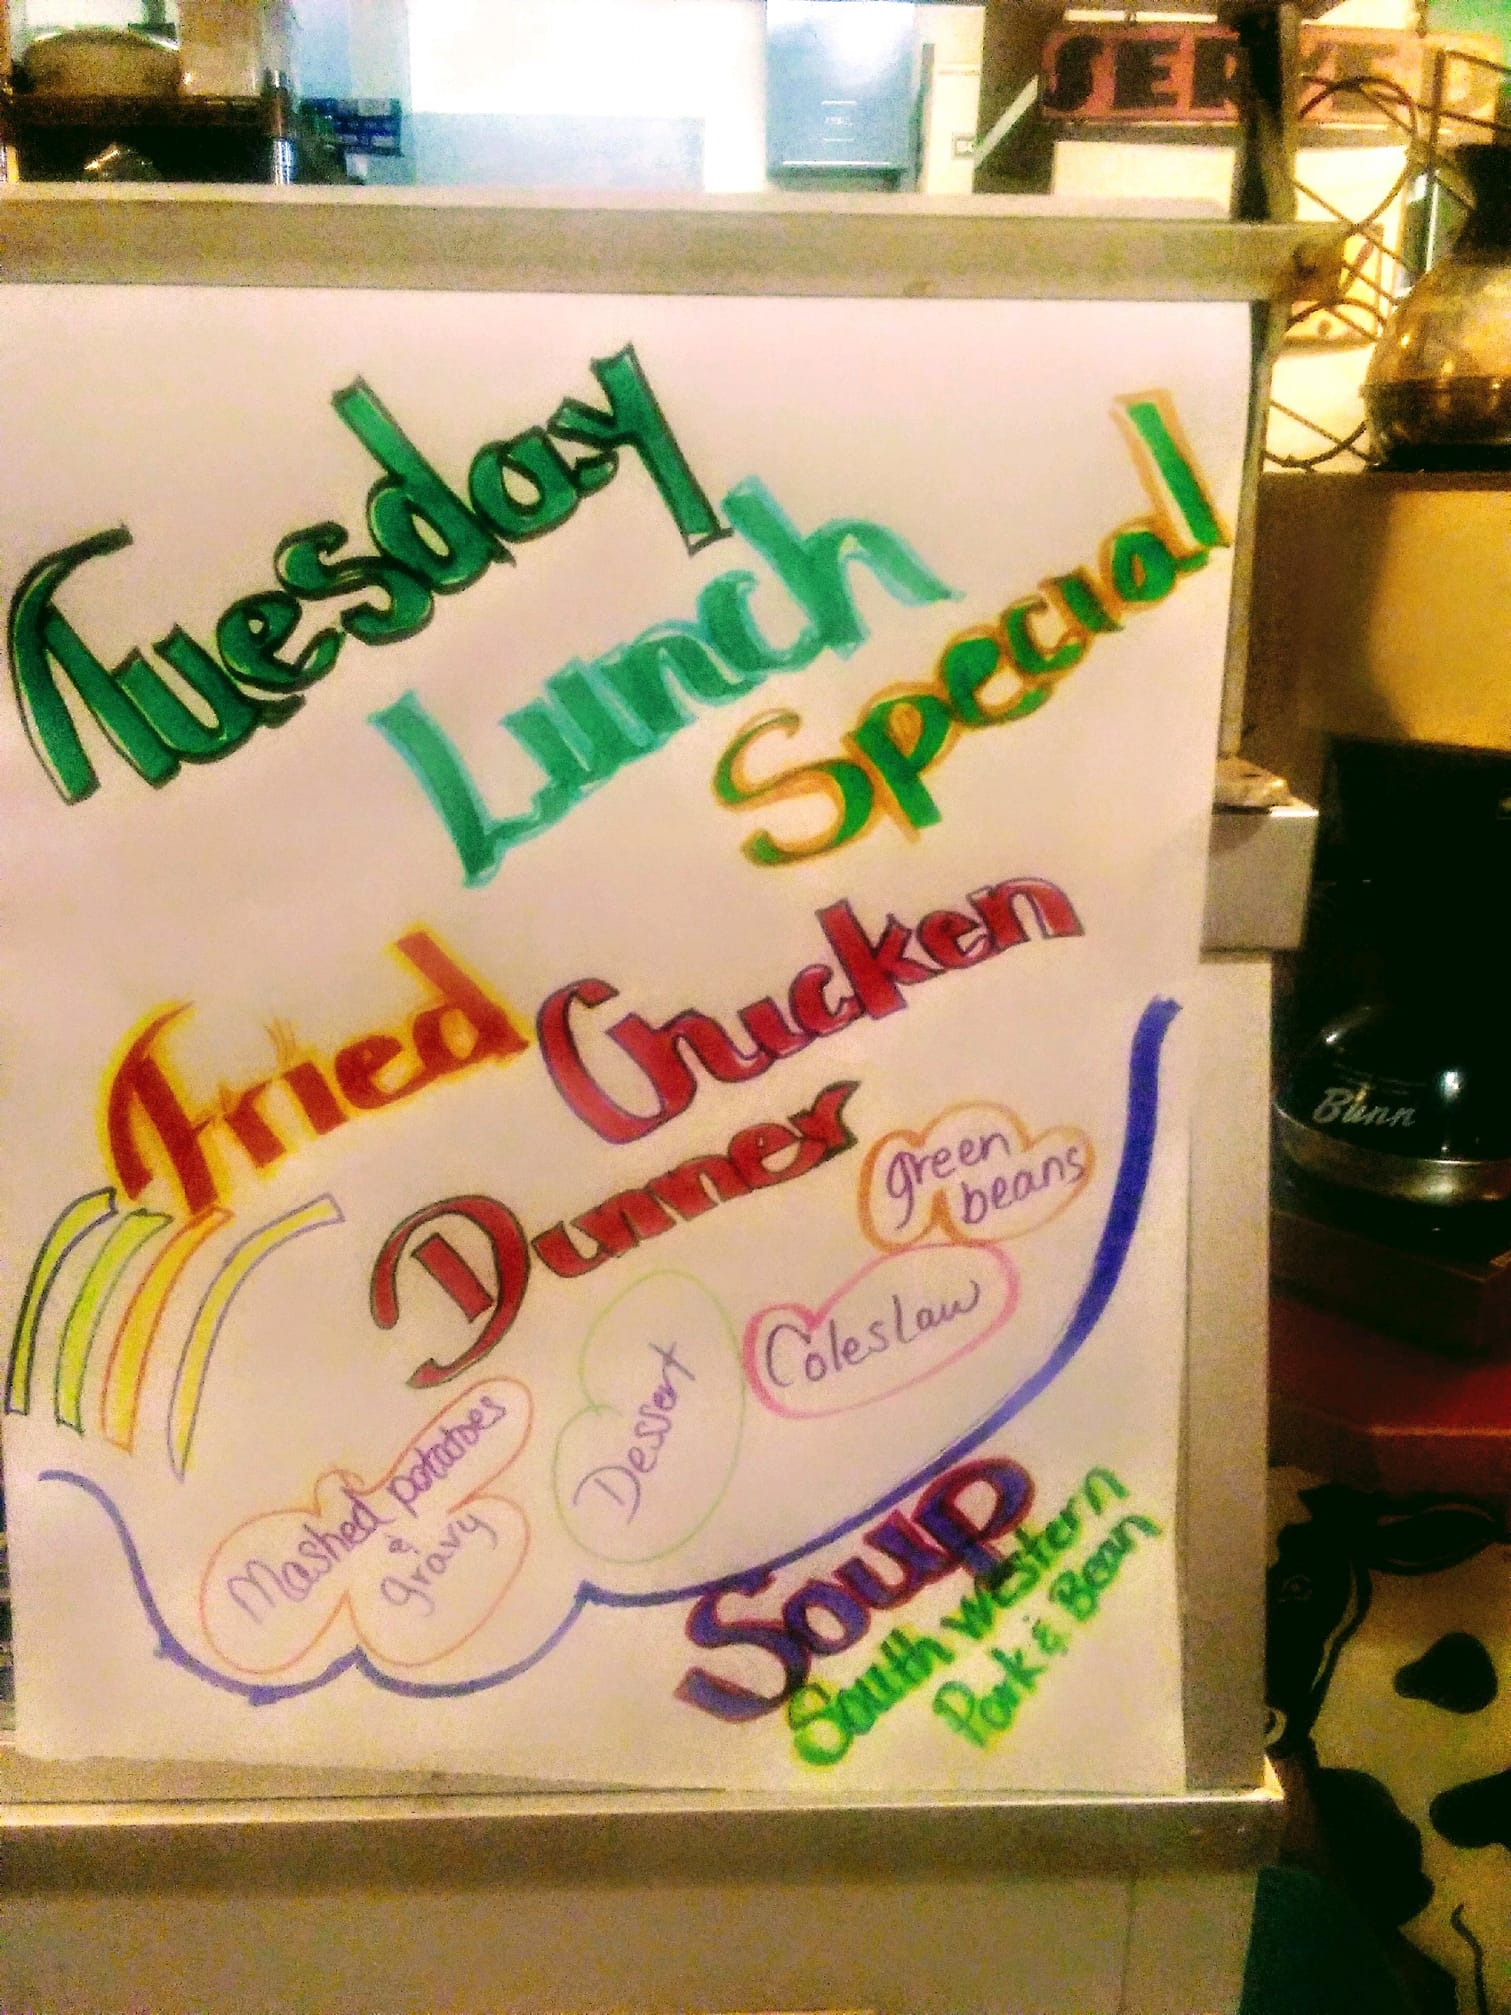 SERVE
Tuesday
Lunch
Special
Fried Chicken
Dinner
green
beans
Coleslaw
Dessert
Mashed potatoes
&
gravy
Soup
South western
Pork & Bean
Bunn